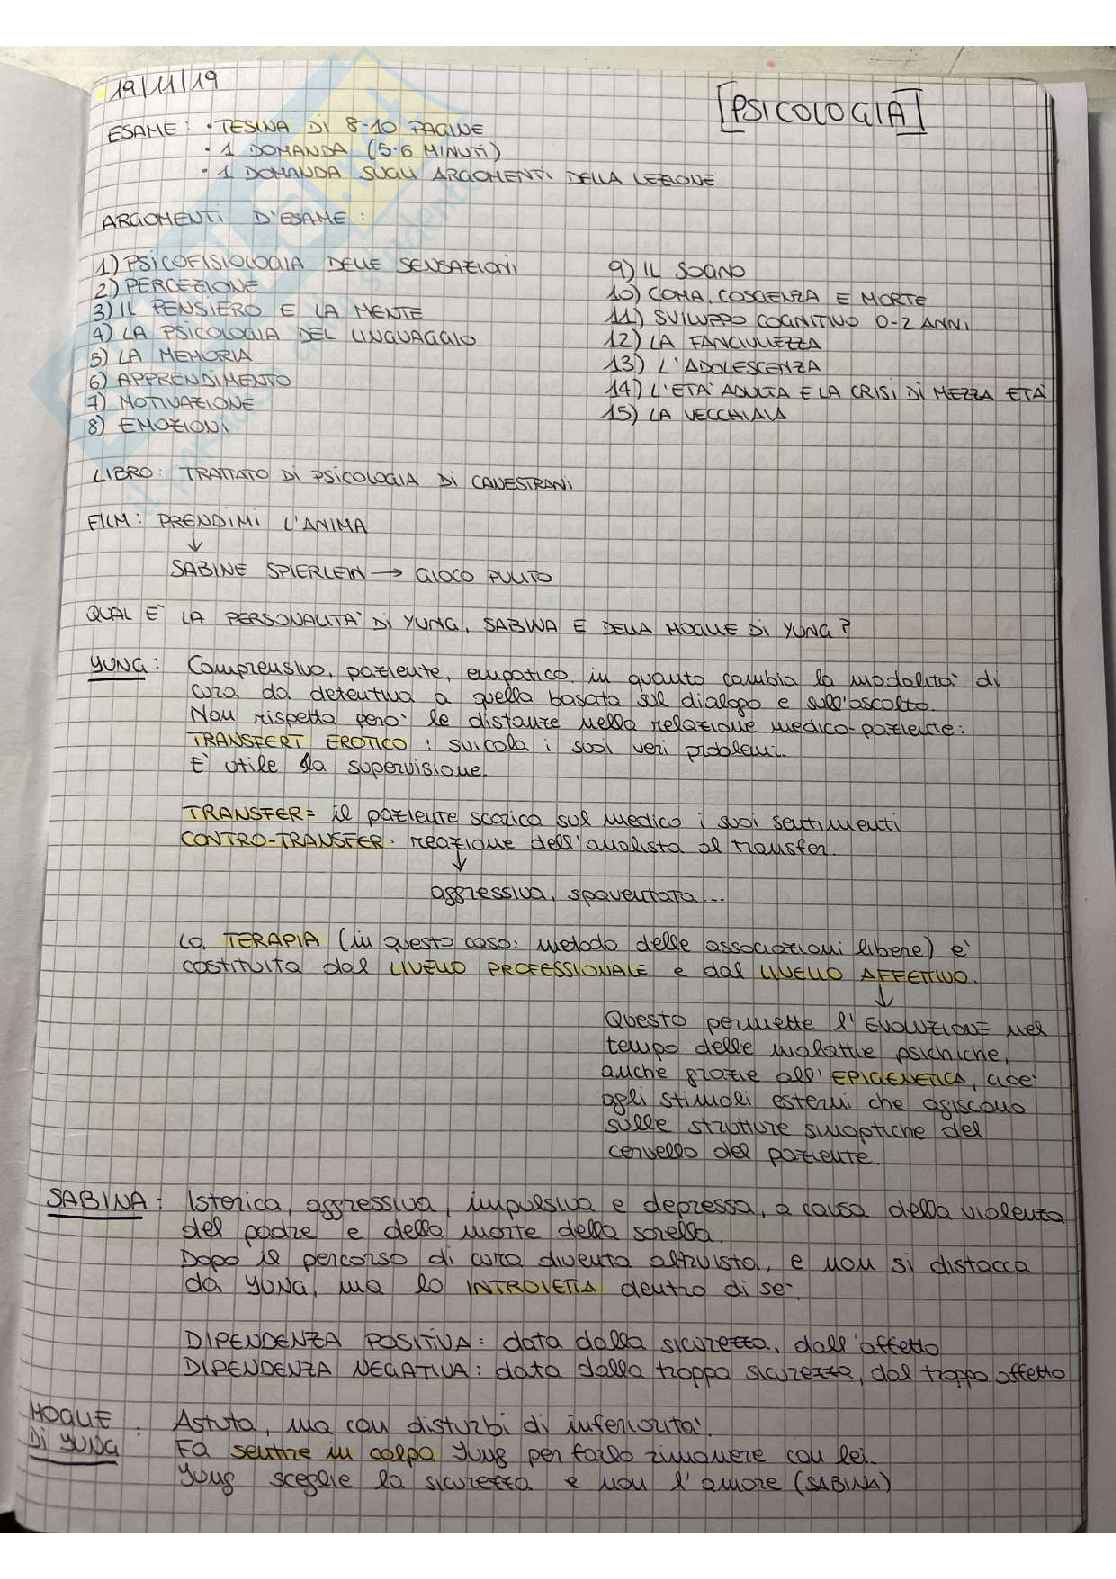 19/11/19
[PSICOLOGIA]
ESAME: • TESINA DI 8-10 PAGINE
• 1 DOMANDA (5-6 MINUTI)
• 1 DOMANDA SUGLI ARGOMENTI DELLA LEZIONE
ARGOMENTI D'ESAME:
1) PSICOFISIOLOGIA DELLE SENSAZIONI
2) PERCEZIONE
3) IL PENSIERO E LA MENTE
4) LA PSICOLOGIA DEL LINGUAGGIO
5) LA MEMORIA
6) APPRENDIMENTO
7) MOTIVAZIONE
8) EMOZIONI
9) IL SOGNO
10) COMA, COSCIENZA E MORTE
11) SVILUPPO COGNITIVO 0-2 ANNI
12) LA FANCIULLEZZA
13) L'ADOLESCENZA
14) L'ETA' ADULTA E LA CRISI DI MEZZA ETA'
15) LA VECCHIAIA
LIBRO: TRATTATO DI PSICOLOGIA DI CANESTRARI
FILM: PRENDIMI L'ANIMA
↓
SABINE SPIERLEIN → GIOCO PULITO
QUAL E' LA PERSONALITA' DI YUNG, SABINA E DELLA MOGLIE DI YUNG?
YUNG: Comprensivo, paziente, empatico, in quanto cambia la modalita' di
cura da detentiva a quella basata sul dialogo e sull'ascolto.
Non rispetta pero' le distanze nella relazione medico-paziente:
TRANSFERT EROTICO: svicola i suoi veri problemi.
E' utile la supervisione.
TRANSFER= il paziente scarica sul medico i suoi sentimenti
CONTRO-TRANSFER: reazione dell'analista al transfer.
↓
aggressiva, spaventata...
La TERAPIA (in questo caso: metodo delle associazioni libere) e'
costituita dal LIVELLO PROFESSIONALE e dal LIVELLO AFFETTIVO.
↓
Questo permette l'EVOLUZIONE nel
tempo delle malattie psichiche,
anche grazie all'EPIGENETICA, cioe'
agli stimoli esterni che agiscono
sulle strutture sinaptiche del
cervello del paziente.
SABINA: Isterica, aggressiva, impulsiva e depressa, a causa della violenza
del padre e della morte della sorella.
Dopo il percorso di cura diventa altruista, e non si distacca
da YUNG, ma lo INTROIETTA dentro di se'.
DIPENDENZA POSITIVA: data dalla sicurezza, dall'affetto
DIPENDENZA NEGATIVA: data dalla troppa sicurezza, dal troppo affetto
MOGLIE DI YUNG: Astuta, ma con disturbi di inferiorita'.
Fa sentire in colpa Yung per farlo rimanere con lei.
Yung sceglie la sicurezza e non l'amore (SABINA)